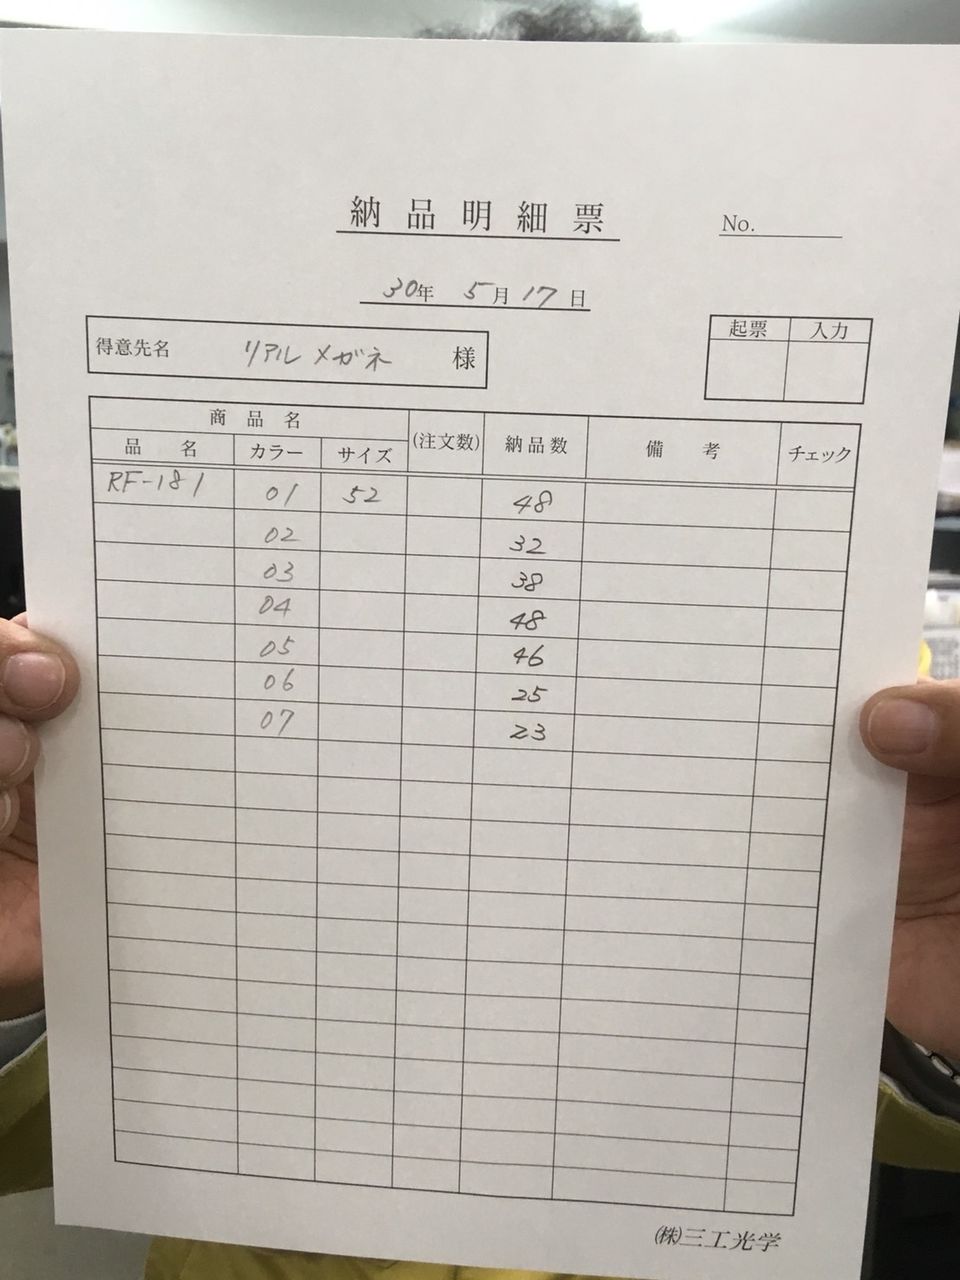 納品明細票
No.
30年 5月17日
得意先名 リアルメガネ 様
起票 入力
商品名 (注文数) 納品数 備考 チェック
品名 カラー サイズ
RF-181 01 52 48
02 32
03 38
04 48
05 46
06 25
07 23
(株)三工光学